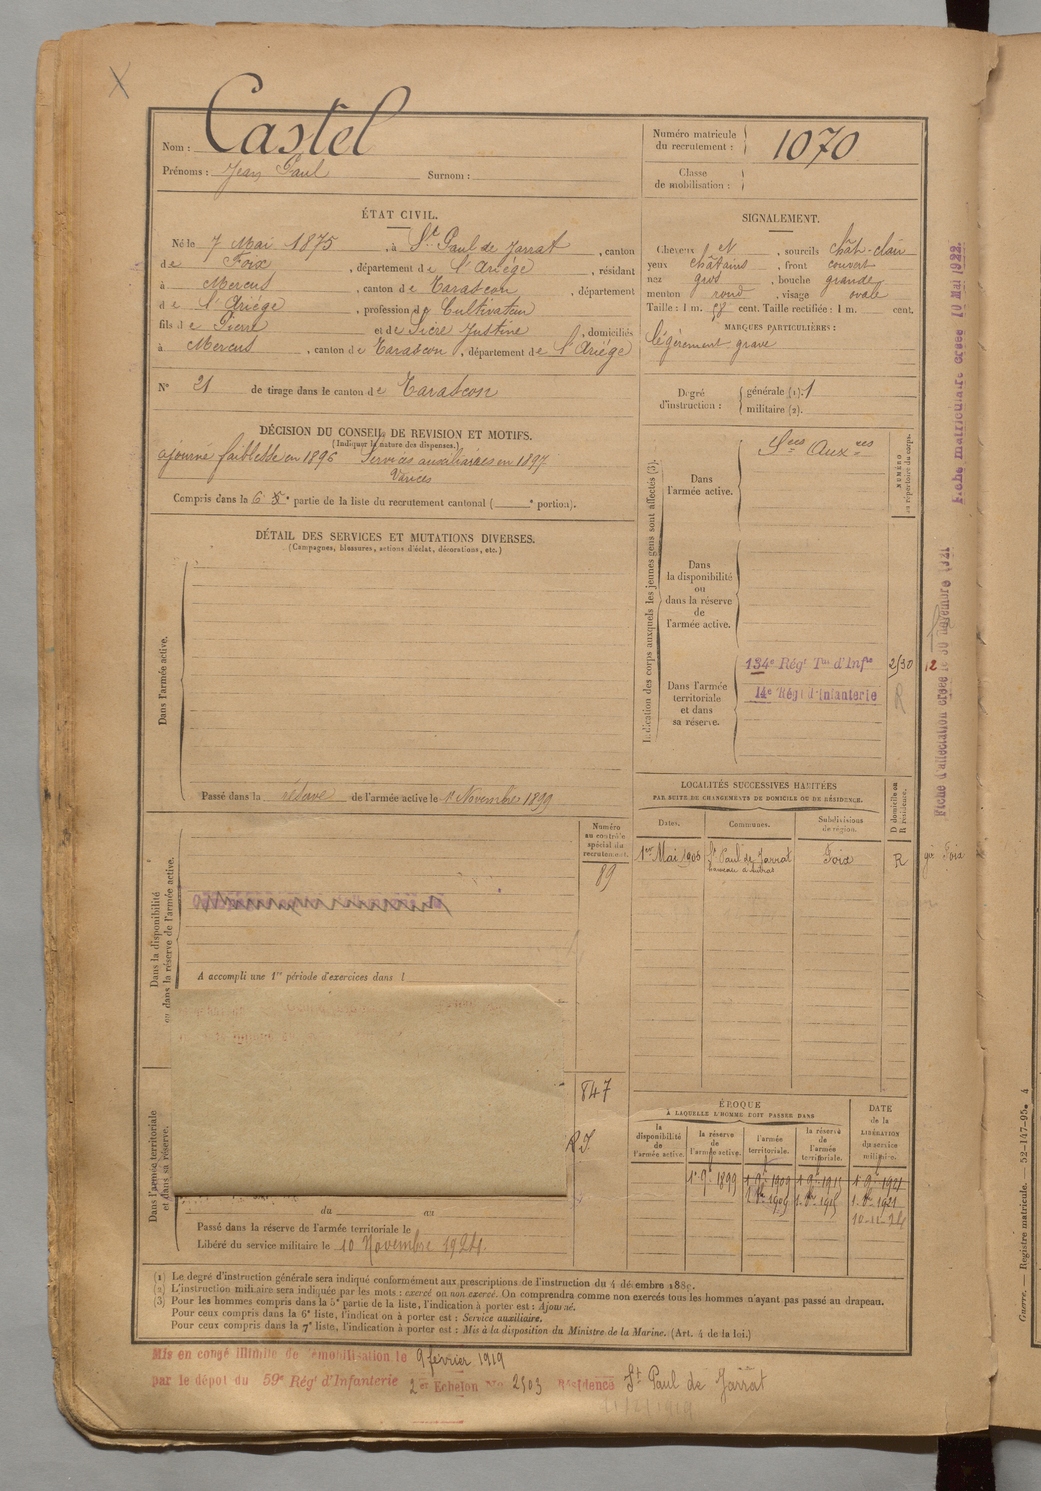 Nom : Castel
Prénoms : Jean Paul Surnom :
Numéro matricule du recrutement : 1070
Classe de mobilisation :
ÉTAT CIVIL.
Né le 7 Mai 1875, à St Paul de Jarrat, canton
de Foix, département de l'Ariège, résidant
à Mercus, canton de Tarascon, département
de l'Ariège, profession de Cultivateur
fils de Pierre et de Sicre Justine, domiciliés
à Mercus, canton de Tarascon, département de l'Ariège
N° 21 de tirage dans le canton de Tarascon
SIGNALEMENT.
Cheveux et, sourcils chât-clair
yeux châtains, front couvert
nez gros, bouche grande
menton rond, visage ovale
Taille : 1 m. 58 cent. Taille rectifiée : 1 m. cent.
MARQUES PARTICULIÈRES :
légèrement gravé
Degré d'instruction : générale (1). 1
militaire (2).
DÉCISION DU CONSEIL DE REVISION ET MOTIFS.
(Indiquer la nature des dispenses.)
ajourné faiblesse en 1896 Services auxiliaires en 1897
Varices
Compris dans la 6 e partie de la liste du recrutement cantonal ( e portion).
DÉTAIL DES SERVICES ET MUTATIONS DIVERSES.
(Campagnes, blessures, actions d'éclat, décorations, etc.)
Dans l'armée active.
Passé dans la réserve de l'armée active le 1er Novembre 1899
Indication des corps auxquels les jeunes gens sont affectés (3).
NUMÉRO au répertoire du corps.
Dans l'armée active.
Sces Auxres
Dans la disponibilité ou dans la réserve de l'armée active.
Dans l'armée territoriale et dans sa réserve.
134e Régt Tal d'Infie 2/30 12
14e Régt d'Infanterie R
LOCALITÉS SUCCESSIVES HABITÉES
PAR SUITE DE CHANGEMENTS DE DOMICILE OU DE RÉSIDENCE.
Dates. Communes. Subdivisions de région. D domicile ou R résidence.
1er Mai 1905 St Paul de Jarrat Foix R
hameau d'Antras
Dans la disponibilité ou dans la réserve de l'armée active.
Numéro au contrôle spécial du recrutement.
89
A accompli une 1re période d'exercices dans l
Dans l'armée territoriale et dans sa réserve.
847
du au
Passé dans la réserve de l'armée territoriale le
Libéré du service militaire le 10 Novembre 1924.
ÉPOQUE
À LAQUELLE L'HOMME DOIT PASSER DANS
la disponibilité de l'armée active. la réserve de l'armée active. l'armée territoriale. la réserve de l'armée territoriale. DATE de la LIBÉRATION du service militaire.
1er 9bre 1899 1 9bre 1909 1 9bre 1915 1 9bre 1921
10-11-24
(1) Le degré d'instruction générale sera indiqué conformément aux prescriptions de l'instruction du 4 décembre 1889.
(2) L'instruction militaire sera indiquée par les mots : exercé ou non exercé. On comprendra comme non exercés tous les hommes n'ayant pas passé au drapeau.
(3) Pour les hommes compris dans la 5e partie de la liste, l'indication à porter est : Ajourné.
Pour ceux compris dans la 6e liste, l'indication à porter est : Service auxiliaire.
Pour ceux compris dans la 7e liste, l'indication à porter est : Mis à la disposition du Ministre de la Marine. (Art. 4 de la loi.)
Mis en congé illimité de démobilisation le 9 février 1919
par le dépôt du 59e Régt d'Infanterie 2e Echelon No 2503 Résidence St Paul de Jarrat
Fiche matriculaire créée 10 Mai 1922
Fiche d'affectation créée le 30 novembre 1921
Guerre. — Registre matricule. — 52-147-95. 4